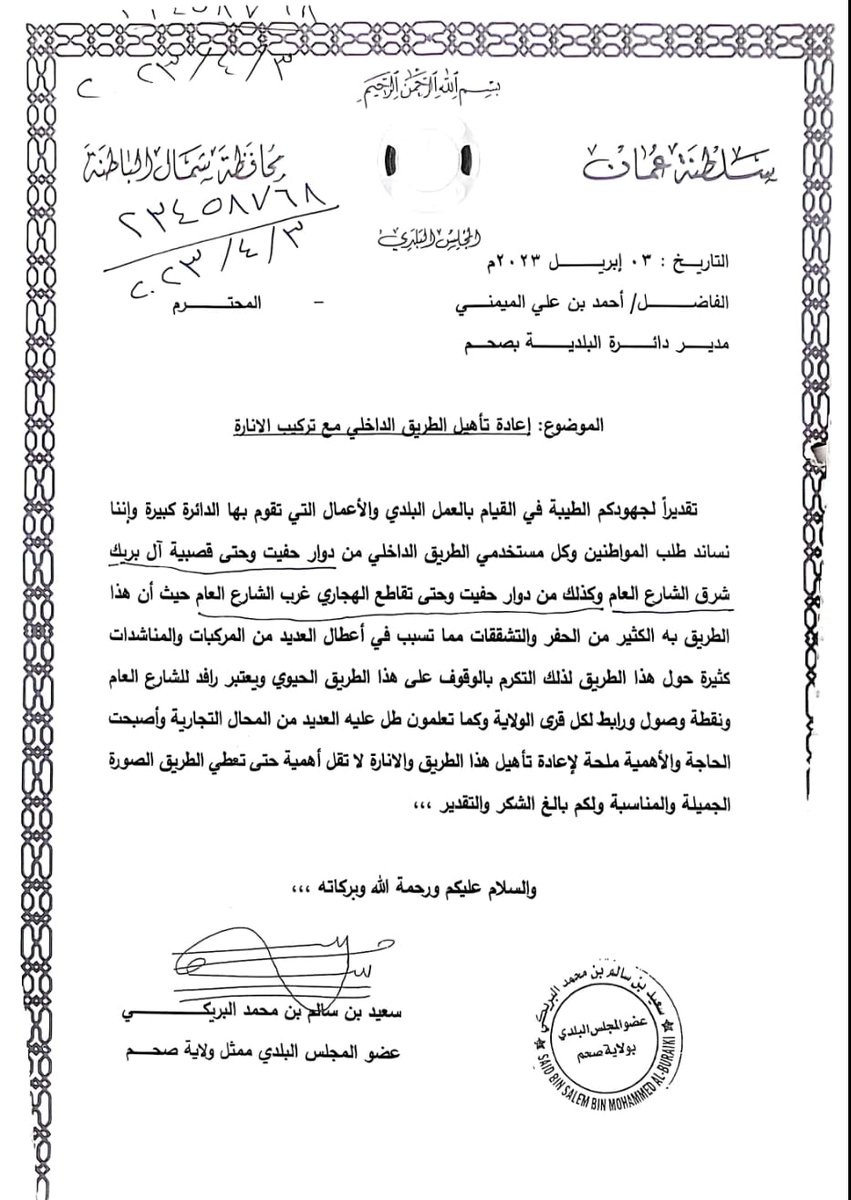 ٢٠٢٣/٤/٣
بسم الله الرحمن الرحيم
سلطنة عمان
محافظة شمال الباطنة
المجلس البلدي
٢٣٤٥٨٧٦٨
٢٠٢٣/٤/٣
التاريخ : ٠٣ إبريل ٢٠٢٣م
الفاضل/ أحمد بن علي الميمني - المحترم
مدير دائرة البلدية بصحم
الموضوع: إعادة تأهيل الطريق الداخلي مع تركيب الانارة
تقديراً لجهودكم الطيبة في القيام بالعمل البلدي والأعمال التي تقوم بها الدائرة كبيرة وإننا
نساند طلب المواطنين وكل مستخدمي الطريق الداخلي من دوار حفيت وحتى قصبية آل بريك
شرق الشارع العام وكذلك من دوار حفيت وحتى تقاطع الهجاري غرب الشارع العام حيث أن هذا
الطريق به الكثير من الحفر والتشققات مما تسبب في أعطال العديد من المركبات والمناشدات
كثيرة حول هذا الطريق لذلك التكرم بالوقوف على هذا الطريق الحيوي ويعتبر رافد للشارع العام
ونقطة وصول ورابط لكل قرى الولاية وكما تعلمون طل عليه العديد من المحال التجارية وأصبحت
الحاجة والأهمية ملحة لإعادة تأهيل هذا الطريق والانارة لا تقل أهمية حتى تعطي الطريق الصورة
الجميلة والمناسبة ولكم بالغ الشكر والتقدير ،،،
والسلام عليكم ورحمة الله وبركاته ،،،
سعيد بن سالم بن محمد البريكي
عضو المجلس البلدي ممثل ولاية صحم
سعيد بن سالم بن محمد البريكي
عضو المجلس البلدي
بولاية صحم
SAID BIN SALEM BIN MOHAMMED AL-BURAIKI